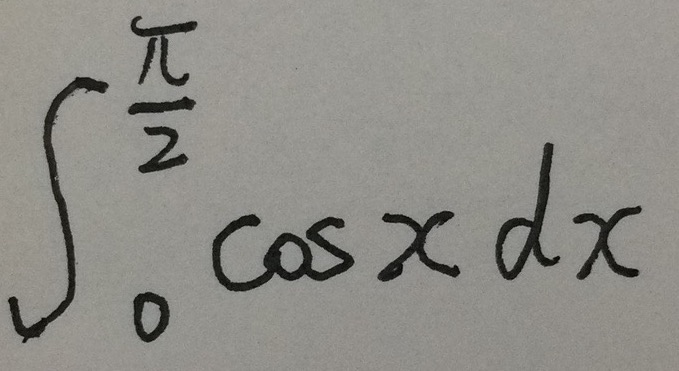 ∫_0^{\frac{π}{2}} cos x dx